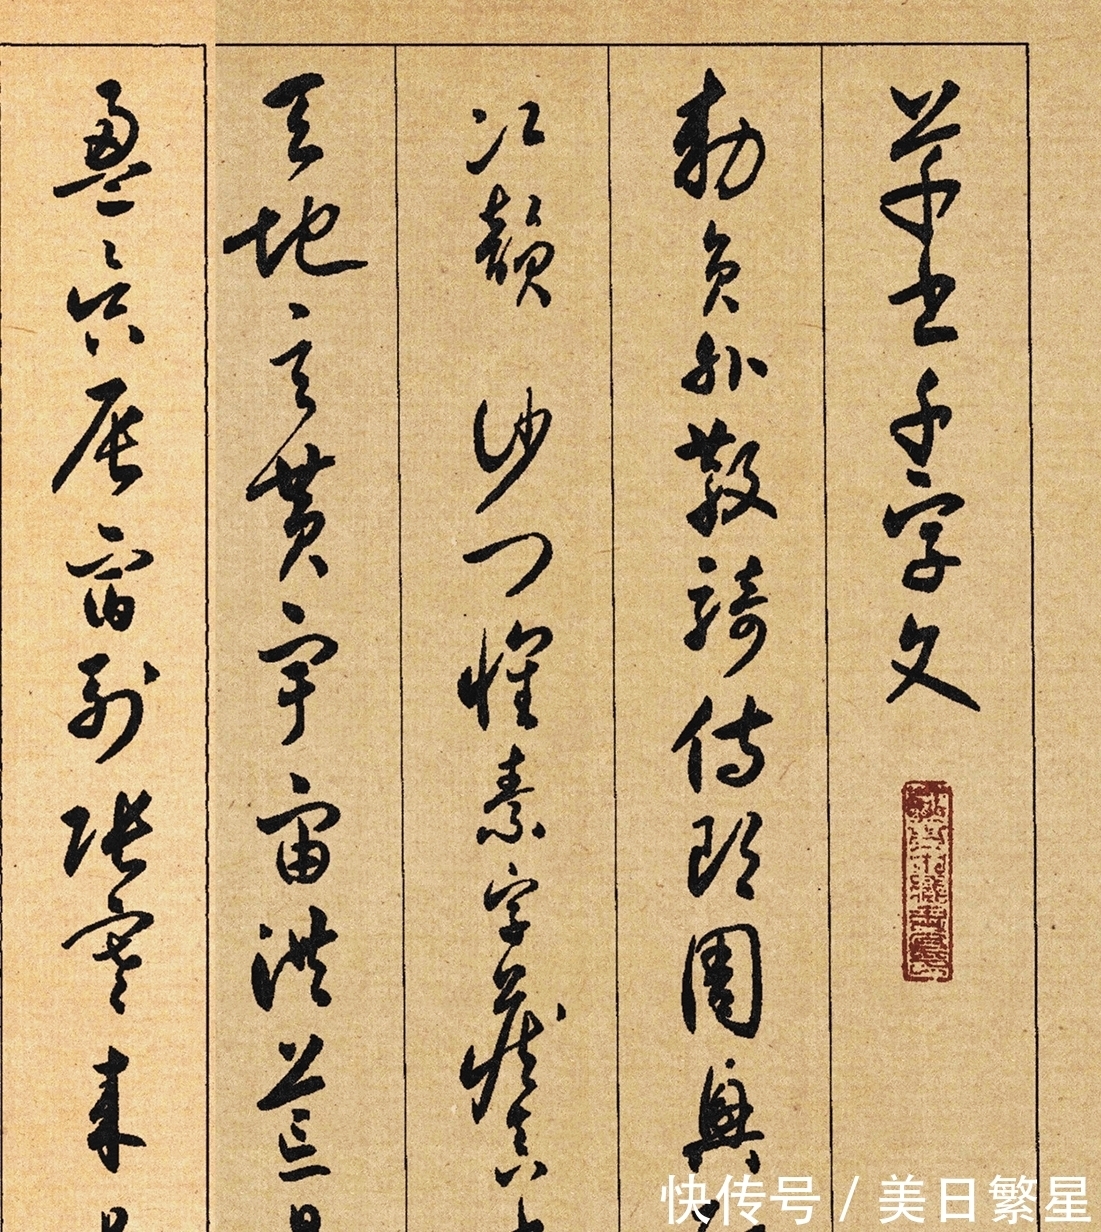 草書千字文
勅員外散騎侍郎周興
次韻 沙門懷素字藏真
天地玄黄宇宙洪荒
盈昃辰宿列張寒来
快传号 / 美日繁星